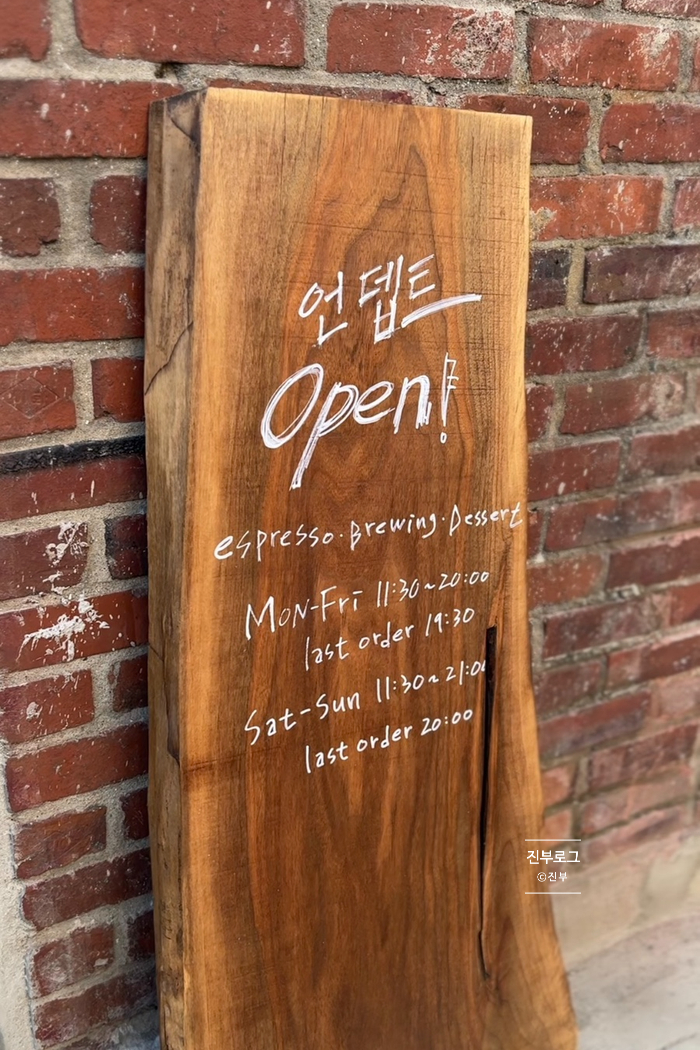 언뎁트
Open!
espresso·Brewing·Dessert
Mon-Fri 11:30~20:00
last order 19:30
Sat-Sun 11:30~21:00
last order 20:00
진부로그
©진부